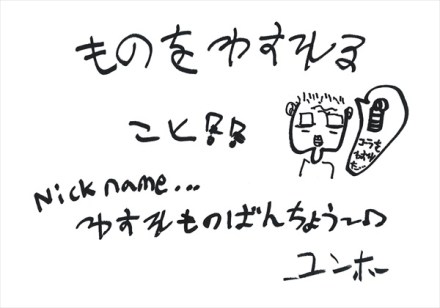 ものをわすれる
こと!!
コーラを
わすれ
た…
Nick name...
わすれものばんちょう〜♪
ユンホ